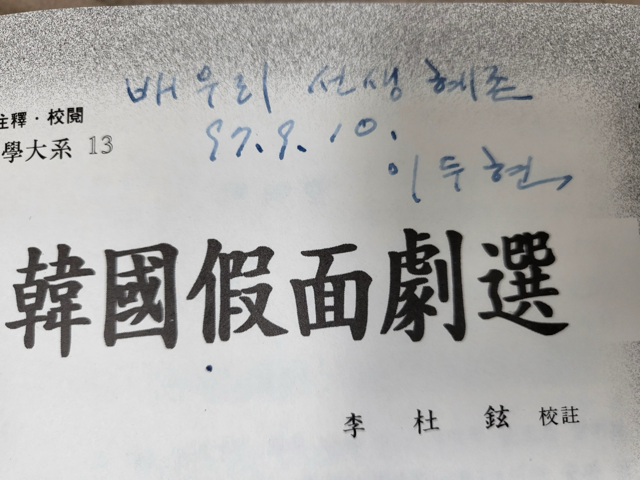 배우리 선생 혜존
註釋·校閱
學大系 13
97.9.10.
이두현
韓國假面劇選
李杜鉉 校註